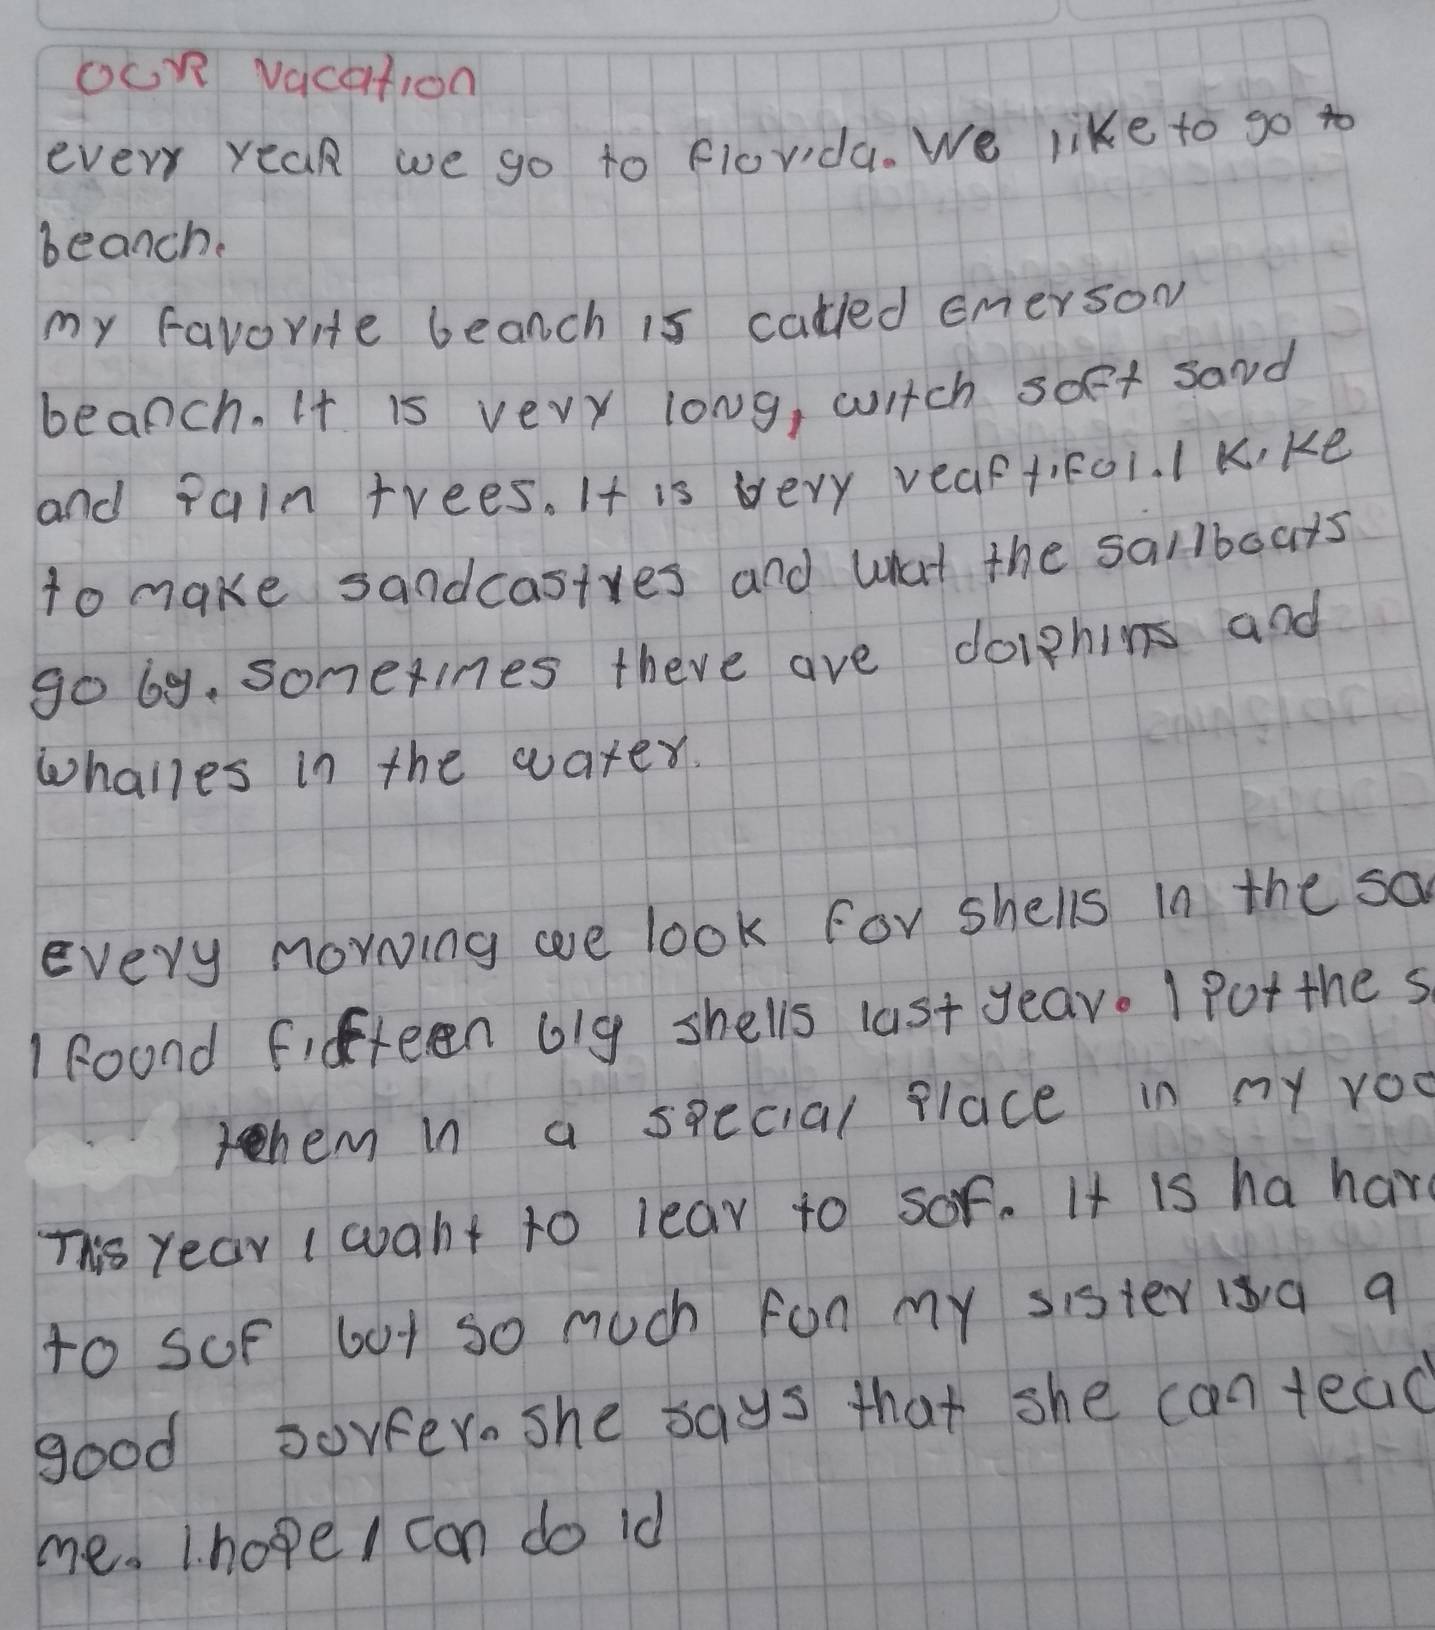 OUR vacation
every yeaR we go to Florida. We like to go to
beanch.
my Favorite beanch is called Emerson
beanch. It is very long, witch soft sand
and Paln trees. It is very veaftifol. I Kike
to make sandcastres and what the sailboats
go by. sometimes there are dolphins and
whalles in the water.
Every Morning we look For shells in the sa
I Found Fifteen big shells last year. I Pot the s
them in a special Place in my roo
This year I want to lear to sorf. It is ha hard
to suf but so much Fun my sister is a a
good sorfer. she says that she can teac
me. I hope I can do id